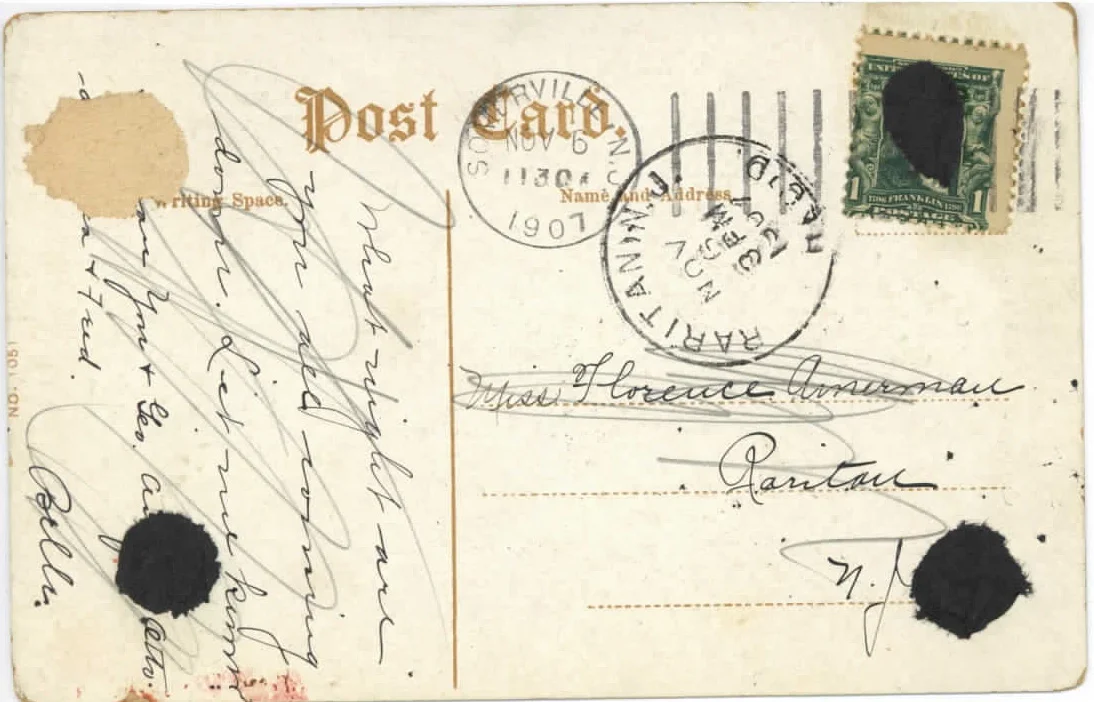 Post Card.
Writing Space.
Name and Address.
SOMERVILLE, N.J.
NOV 6
1130A
1907
RARITAN, N.J.
REC'D.
NOV
6
3 PM
1907
UNITED STATES OF
1 1706 FRANKLIN 1790 1
POSTAGE
Miss Florence Amerman
Raritan
N.J.
What night are
you all coming
down. Let me know
an You + Geo. Aug
Otto.
a + Fred.
Bell
NO. 1051